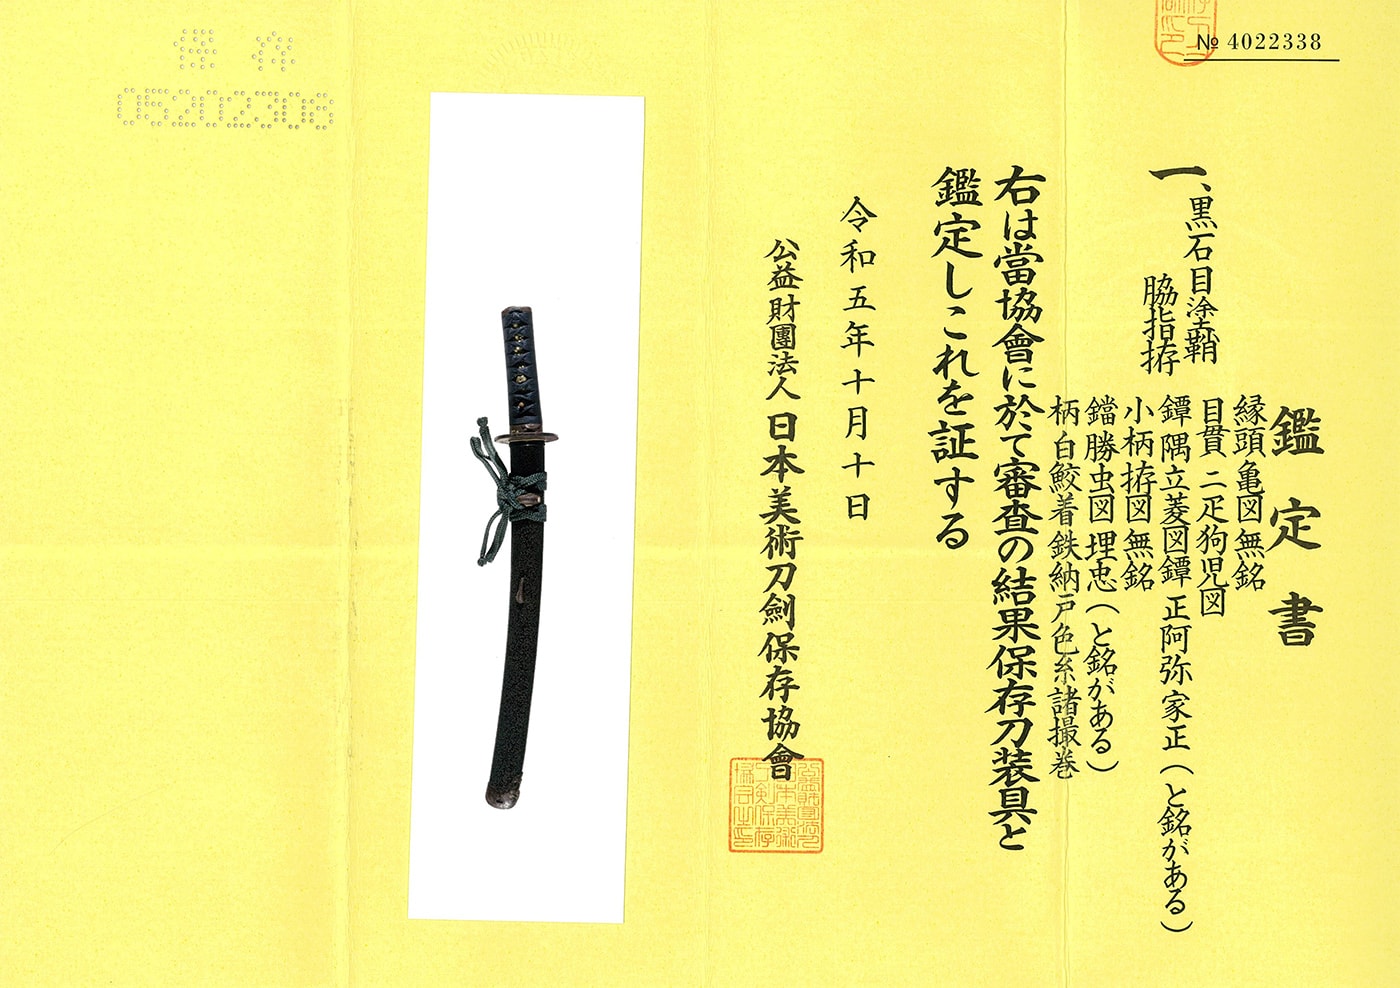 № 4022338
鑑定書
一、黒石目塗鞘
脇指拵
縁頭 亀図 無銘
目貫 二疋狗児図
鐔 隅立菱図鐔 正阿弥家正(と銘がある)
小柄 拵図 無銘
鐺 勝虫図 埋忠(と銘がある)
柄 白鮫着鉄納戸色糸諸撮巻
右は當協會に於て審査の結果保存刀装具と
鑑定しこれを証する
令和五年十月十日
公益財團法人 日本美術刀劍保存協會
保存
05202306